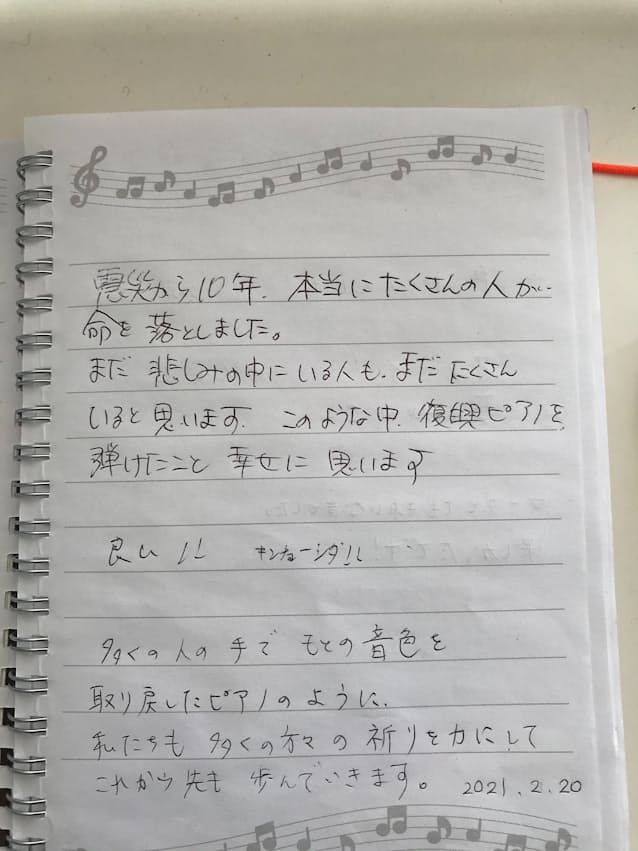 震災から10年、本当にたくさんの人が、
命を落としました。
まだ悲しみの中にいる人も、まだたくさん
いると思います。このような中、復興ピアノを
弾けたこと幸せに思います
良い!!
多くの人の手でもとの音色を
取り戻したピアノのように、
私たちも多くの方々の祈りを力にして
これから先も歩んでいきます。 2021.2.20